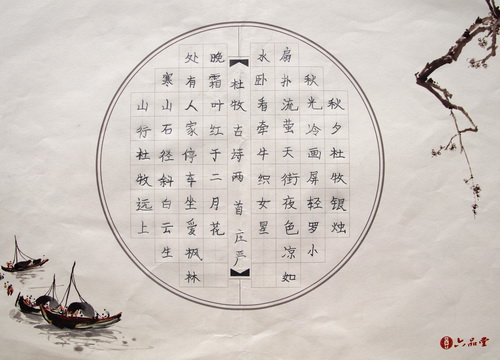 秋夕杜牧银烛
秋光冷画屏轻罗小
扇扑流萤天街夜色凉如
水卧看牵牛织女星
杜牧古诗两首 庄严
山行杜牧远上
寒山石径斜白云生
处有人家停车坐爱枫林
晚霜叶红于二月花
六品堂